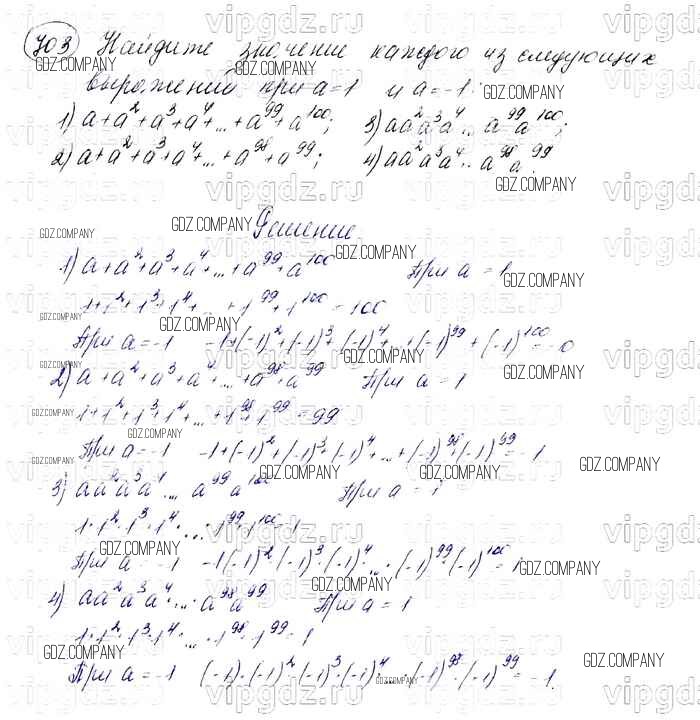 703 Найдите значение каждого из следующих
выражений при a=1 и a=-1:
1) a+a²+a³+a⁴+...+a⁹⁹+a¹⁰⁰; 3) aa²a³a⁴... a⁹⁹a¹⁰⁰;
2) a+a²+a³+a⁴+...+a⁹⁸+a⁹⁹; 4) aa²a³a⁴... a⁹⁸a⁹⁹
Решение
1) a+a²+a³+a⁴+...+a⁹⁹+a¹⁰⁰ При a=1
1+1²+1³+1⁴+...+1⁹⁹+1¹⁰⁰=100
При a=-1 -1+(-1)²+(-1)³+(-1)⁴+...+(-1)⁹⁹+(-1)¹⁰⁰=0
2) a+a²+a³+a⁴+...+a⁹⁸+a⁹⁹ При a=1
1+1²+1³+1⁴+...+1⁹⁸+1⁹⁹=99
При a=-1 -1+(-1)²+(-1)³+(-1)⁴+...+(-1)⁹⁸+(-1)⁹⁹=-1
3) aa²a³a⁴... a⁹⁹a¹⁰⁰ При a=1
1·1²·1³·1⁴·...·1⁹⁹·1¹⁰⁰=1
При a=-1 -1(-1)²·(-1)³·(-1)⁴·...·(-1)⁹⁹·(-1)¹⁰⁰=1
4) aa²a³a⁴·...·a⁹⁸a⁹⁹ При a=1
1·1²·1³·1⁴·...·1⁹⁸·1⁹⁹=1
При a=-1 (-1)·(-1)²·(-1)³·(-1)⁴...·(-1)⁹⁸·(-1)⁹⁹=-1.